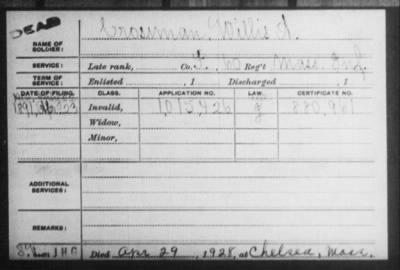 DEAD
Crossman, Willis F.
NAME OF SOLDIER:
SERVICE: Late rank, Co. 60 Reg't Mass. Inf.
TERM OF SERVICE: Enlisted , 1 Discharged , 1
DATE OF FILING. CLASS. APPLICATION NO. LAW. CERTIFICATE NO.
Invalid, 1,015,426 880,961
Widow,
Minor,
ADDITIONAL SERVICES:
REMARKS:
Died Apr 29 , 1928, at Chelsea, Mass.